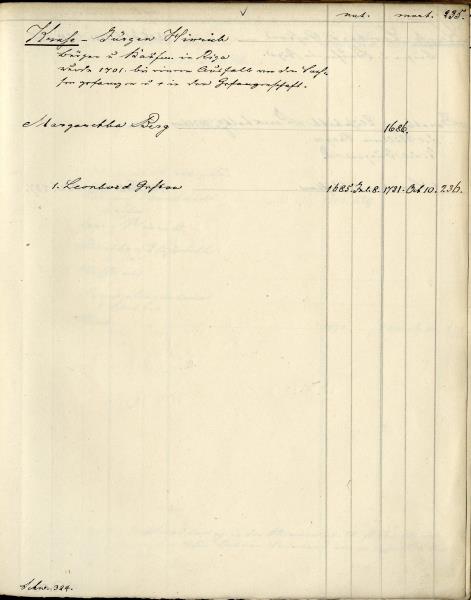 nat. mort. 235.
Kruse - Jürgen Hinrich
Bürger u. Kaufm. in Riga
wurde 1701. bei einem Ausfall von den Sach-
sen gefangen u. † in der Gefangenschaft.
Margaretha Berg 1686.
1. Leonhard Gustav 1685. Jul. 8. 1731. Oct 10. 236.
Schw. 324.